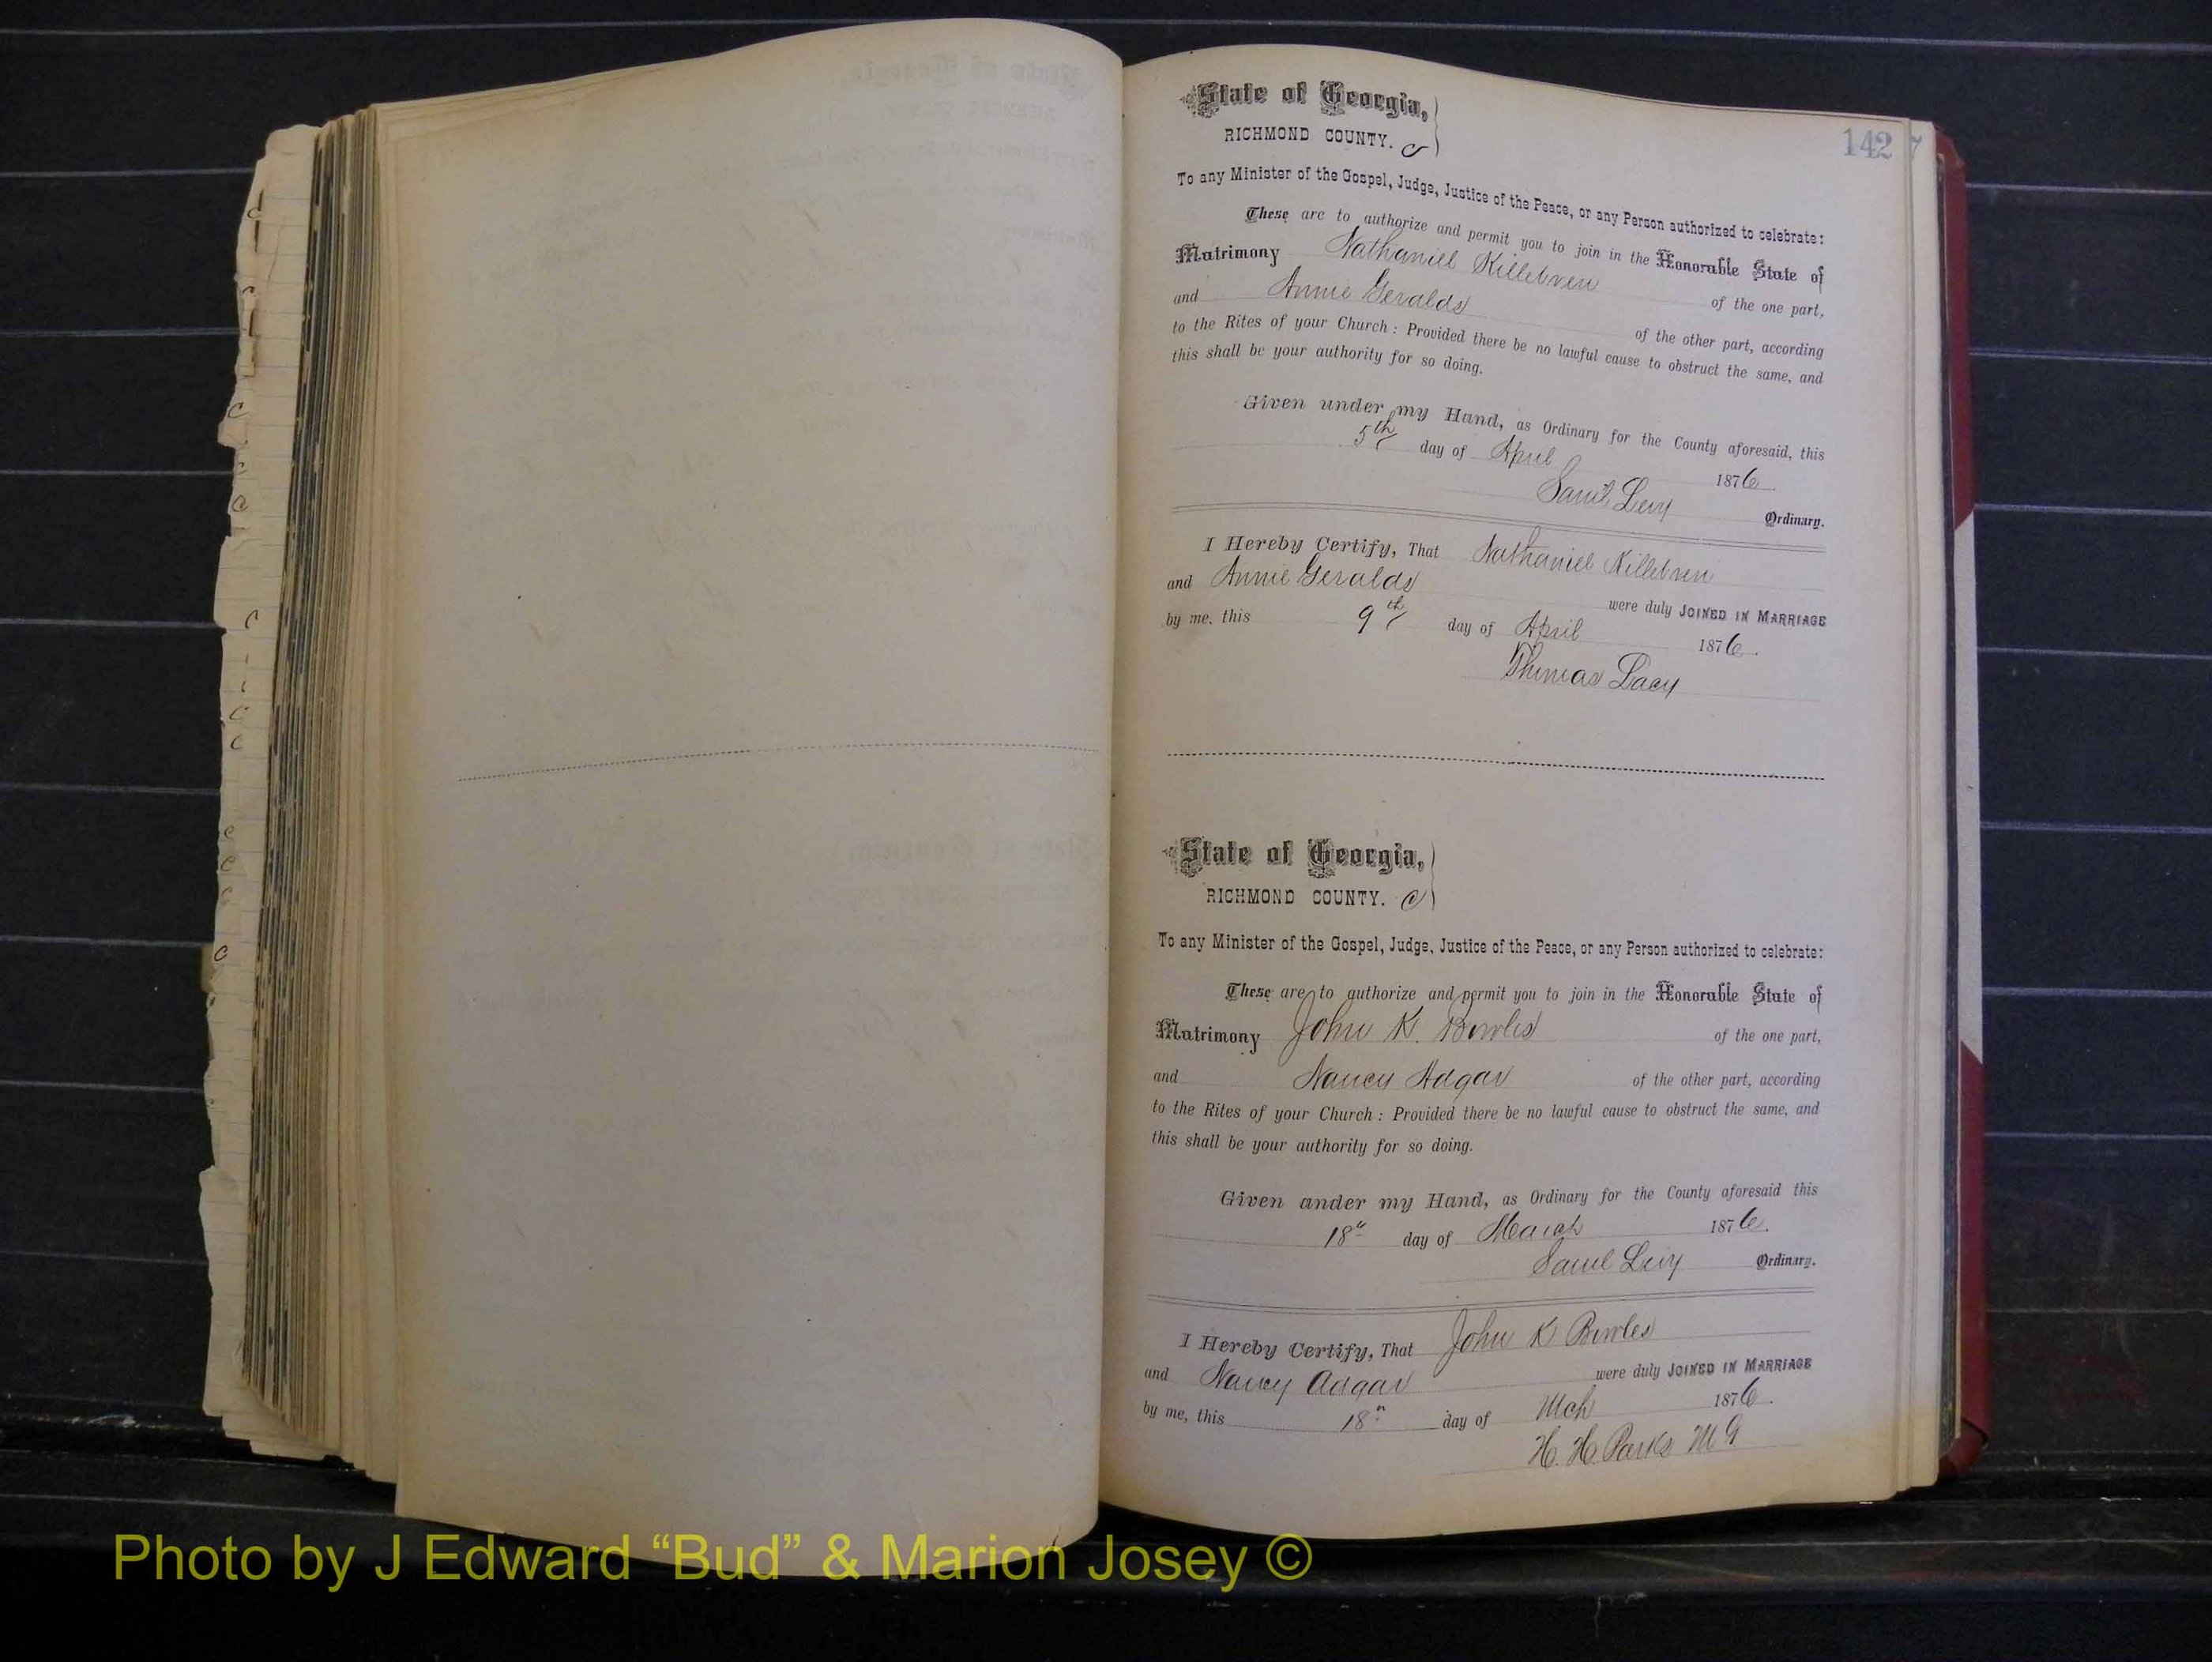 142 7
State of Georgia,
RICHMOND COUNTY. C
To any Minister of the Gospel, Judge, Justice of the Peace, or any Person authorized to celebrate:
These are to authorize and permit you to join in the Honorable State of
Matrimony Nathaniel Killebrew of the one part,
and Annie Geralds of the other part, according
to the Rites of your Church: Provided there be no lawful cause to obstruct the same, and
this shall be your authority for so doing.
Given under my Hand, as Ordinary for the County aforesaid, this
5th day of April 1876.
Saml Levy Ordinary.
I Hereby Certify, That Nathaniel Killebrew
and Annie Geralds were duly JOINED IN MARRIAGE
by me, this 9th day of April 1876.
Thomas Lacy
State of Georgia,
RICHMOND COUNTY. C
To any Minister of the Gospel, Judge, Justice of the Peace, or any Person authorized to celebrate:
These are to authorize and permit you to join in the Honorable State of
Matrimony John K. Bowles of the one part,
and Nancy Adgar of the other part, according
to the Rites of your Church: Provided there be no lawful cause to obstruct the same, and
this shall be your authority for so doing.
Given under my Hand, as Ordinary for the County aforesaid this
18" day of March 1876.
Saml Levy Ordinary.
I Hereby Certify, That John K Bowles
and Nancy Adgar were duly JOINED IN MARRIAGE
by me, this 18" day of Mch 1876.
H. H. Parks M G
Photo by J Edward “Bud” & Marion Josey ©